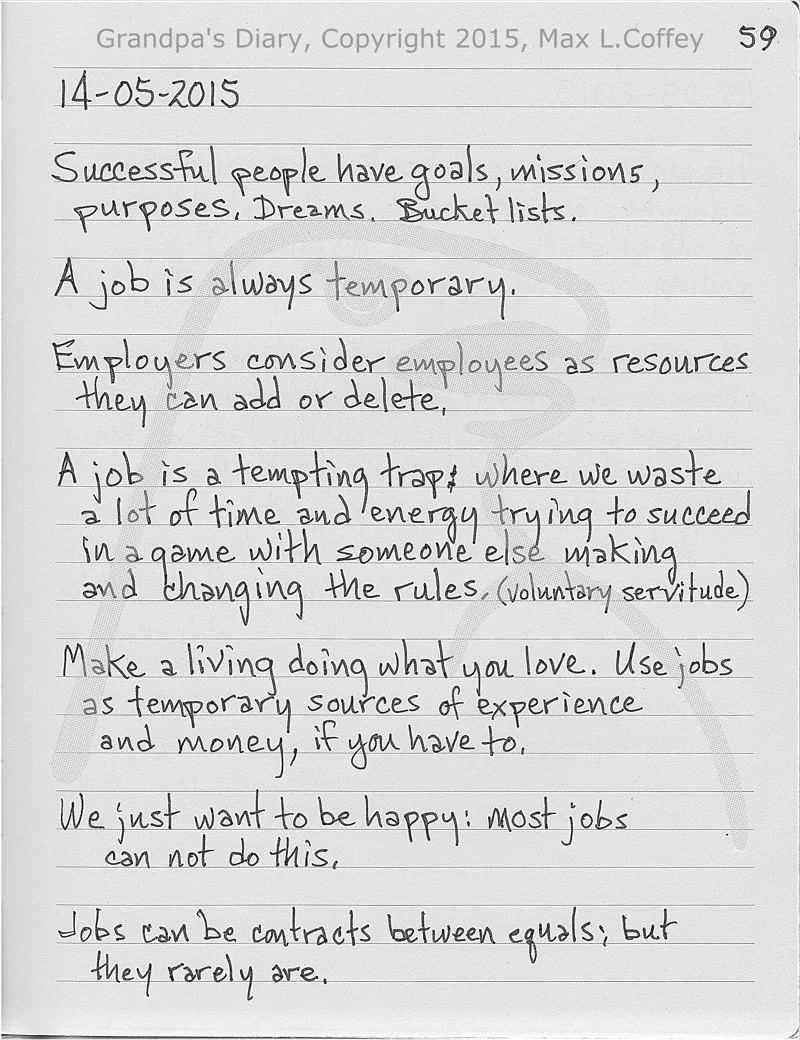 Grandpa's Diary, Copyright 2015, Max L.Coffey 59
14-05-2015
Successful people have goals, missions,
purposes. Dreams. Bucket lists.
A job is always temporary.
Employers consider employees as resources
they can add or delete.
A job is a tempting trap; where we waste
a lot of time and energy trying to succeed
in a game with someone else making
and changing the rules. (voluntary servitude)
Make a living doing what you love. Use jobs
as temporary sources of experience
and money, if you have to.
We just want to be happy: most jobs
can not do this.
Jobs can be contracts between equals; but
they rarely are.